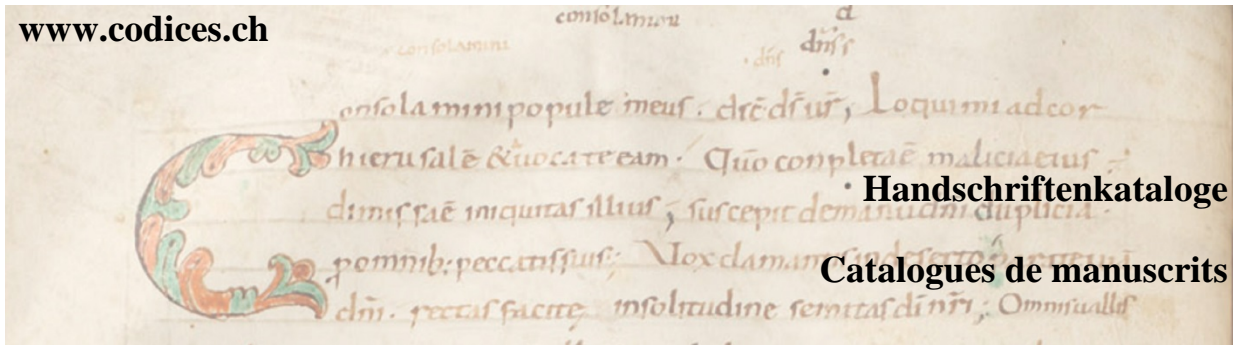 www.codices.ch
consolamini
consolamini
Consolamini popule meus. dic̄ d̄s ur̄; Loquimi ad cor
hierusalē & uocate eam. Qūo conpleta ē malicia eius;
dimissa ē iniquitas illius; suscepit de manu dn̄i duplicia.
p omnib; peccatis suis; Vox clamantis
dn̄i. rectas facite in solitudine semitas dī nr̄i; Omnis uallis
Handschriftenkataloge
Catalogues de manuscrits